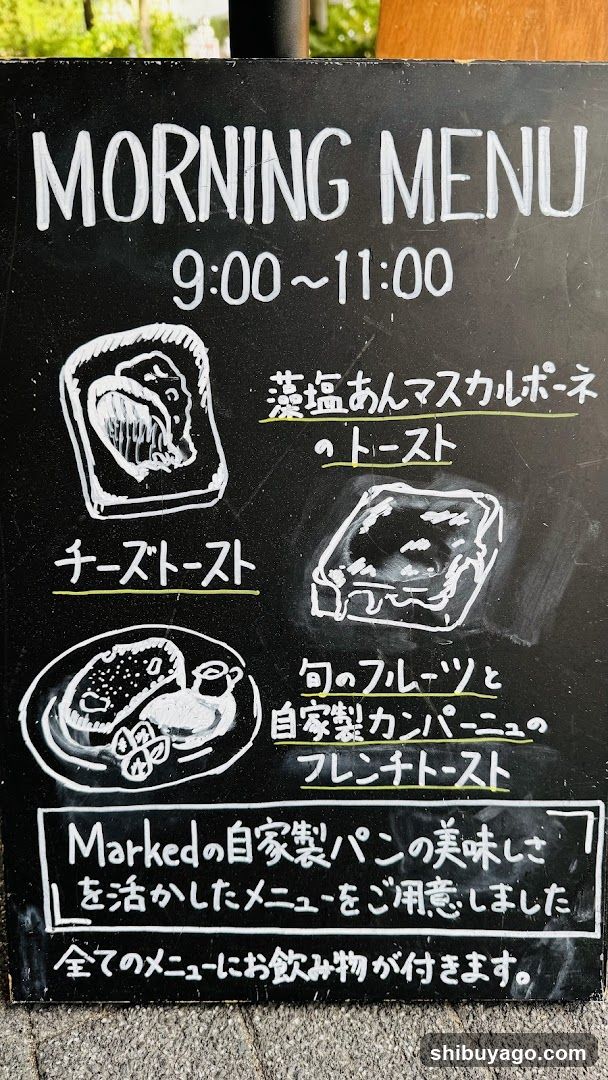 MORNING MENU
9:00〜11:00
藻塩あんマスカルポーネ
のトースト
チーズトースト
旬のフルーツと
自家製カンパーニュの
フレンチトースト
Markedの自家製パンの美味しさ
を活かしたメニューをご用意しました
全てのメニューにお飲み物が付きます。
shibuyago.com